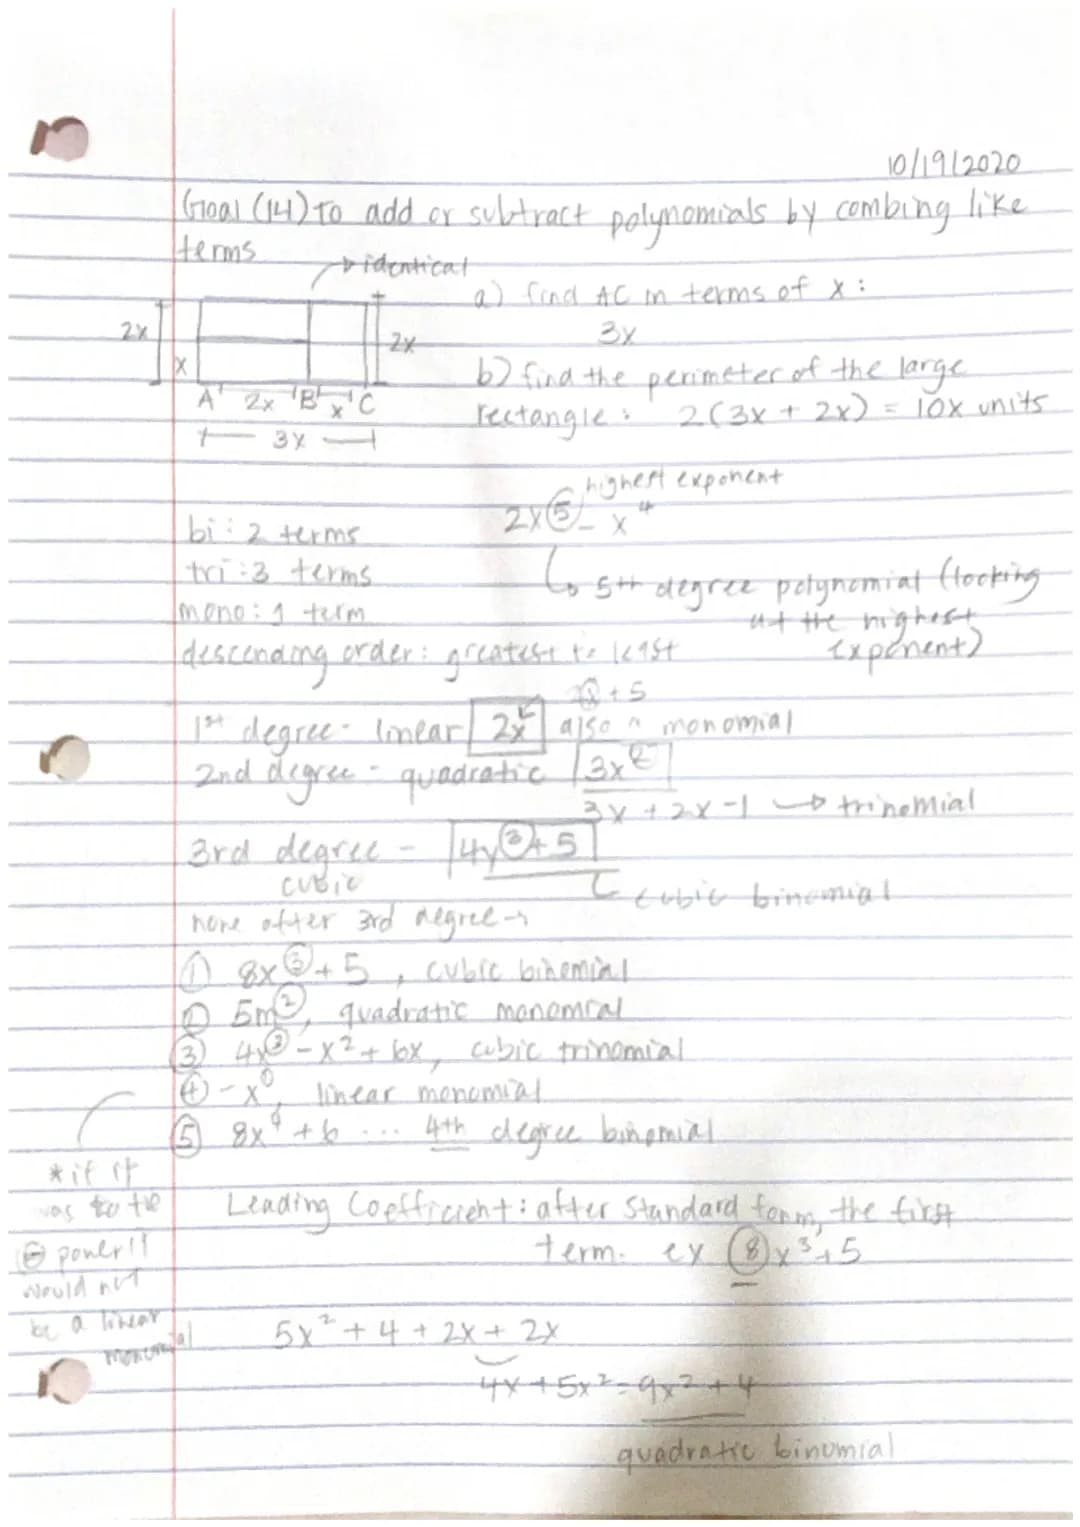 10/19/2020
Goal (14) to add or subtract polynomials by combing like
terms
identical
a) find AC in terms of x:
2x
x
2x
3x
b) find the perimeter of the large
A 2x B x C
rectangle: 2(3x + 2x) = 10x units
3x
highest exponent
2x⁵ - x⁴
bi: 2 terms
tri: 3 terms
5th degree polynomial (looking
mono: 1 term
at the highest
descending order: greatest to least
exponent)
+ 5
1st degree - linear 2x also a monomial
2nd degree - quadratic 3x²
3x + 2x - 1 → trinomial
3rd degree - 4y³ + 5
cubic
cubic binomial
none after 3rd degree →
① 8x³ + 5, cubic binomial
② 5m², quadratic monomial
③ 4x³ - x² + 6x, cubic trinomial
④ - x⁰, linear monomial
⑤ 8x⁴ + 6 ... 4th degree binomial
* if it
was to the
power it
would not
be a linear
monomial
Leading Coefficient: after Standard form, the first
term. ex 8x³ + 5
5x² + 4 + 2x + 2x
4x + 5x² = 9x² + 4
quadratic binomial